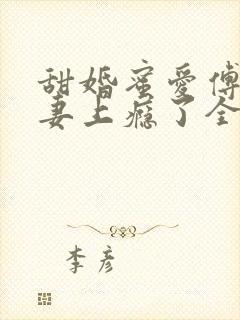 甜婚蜜爱傅
妻上瘾了全
李彦